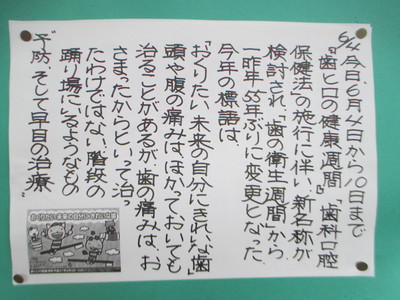 6/4 今日、6月4日から10日まで
「歯と口の健康週間」。「歯科口腔
保健法」の施行に伴い、新名称が
検討され、「歯の衛生週間」から
一昨年、55年ぶりに変更となった。
今年の標語は、
「おくりたい 未来の自分に きれいな歯」
頭や腹の痛みはほかっておいても
治ることがあるが、歯の痛みは、お
さまったからといって治っ
たわけではない。階段の
踊り場にいるようなもの
予防、そして早目の治療
おくりたい未来の自分にきれいな歯